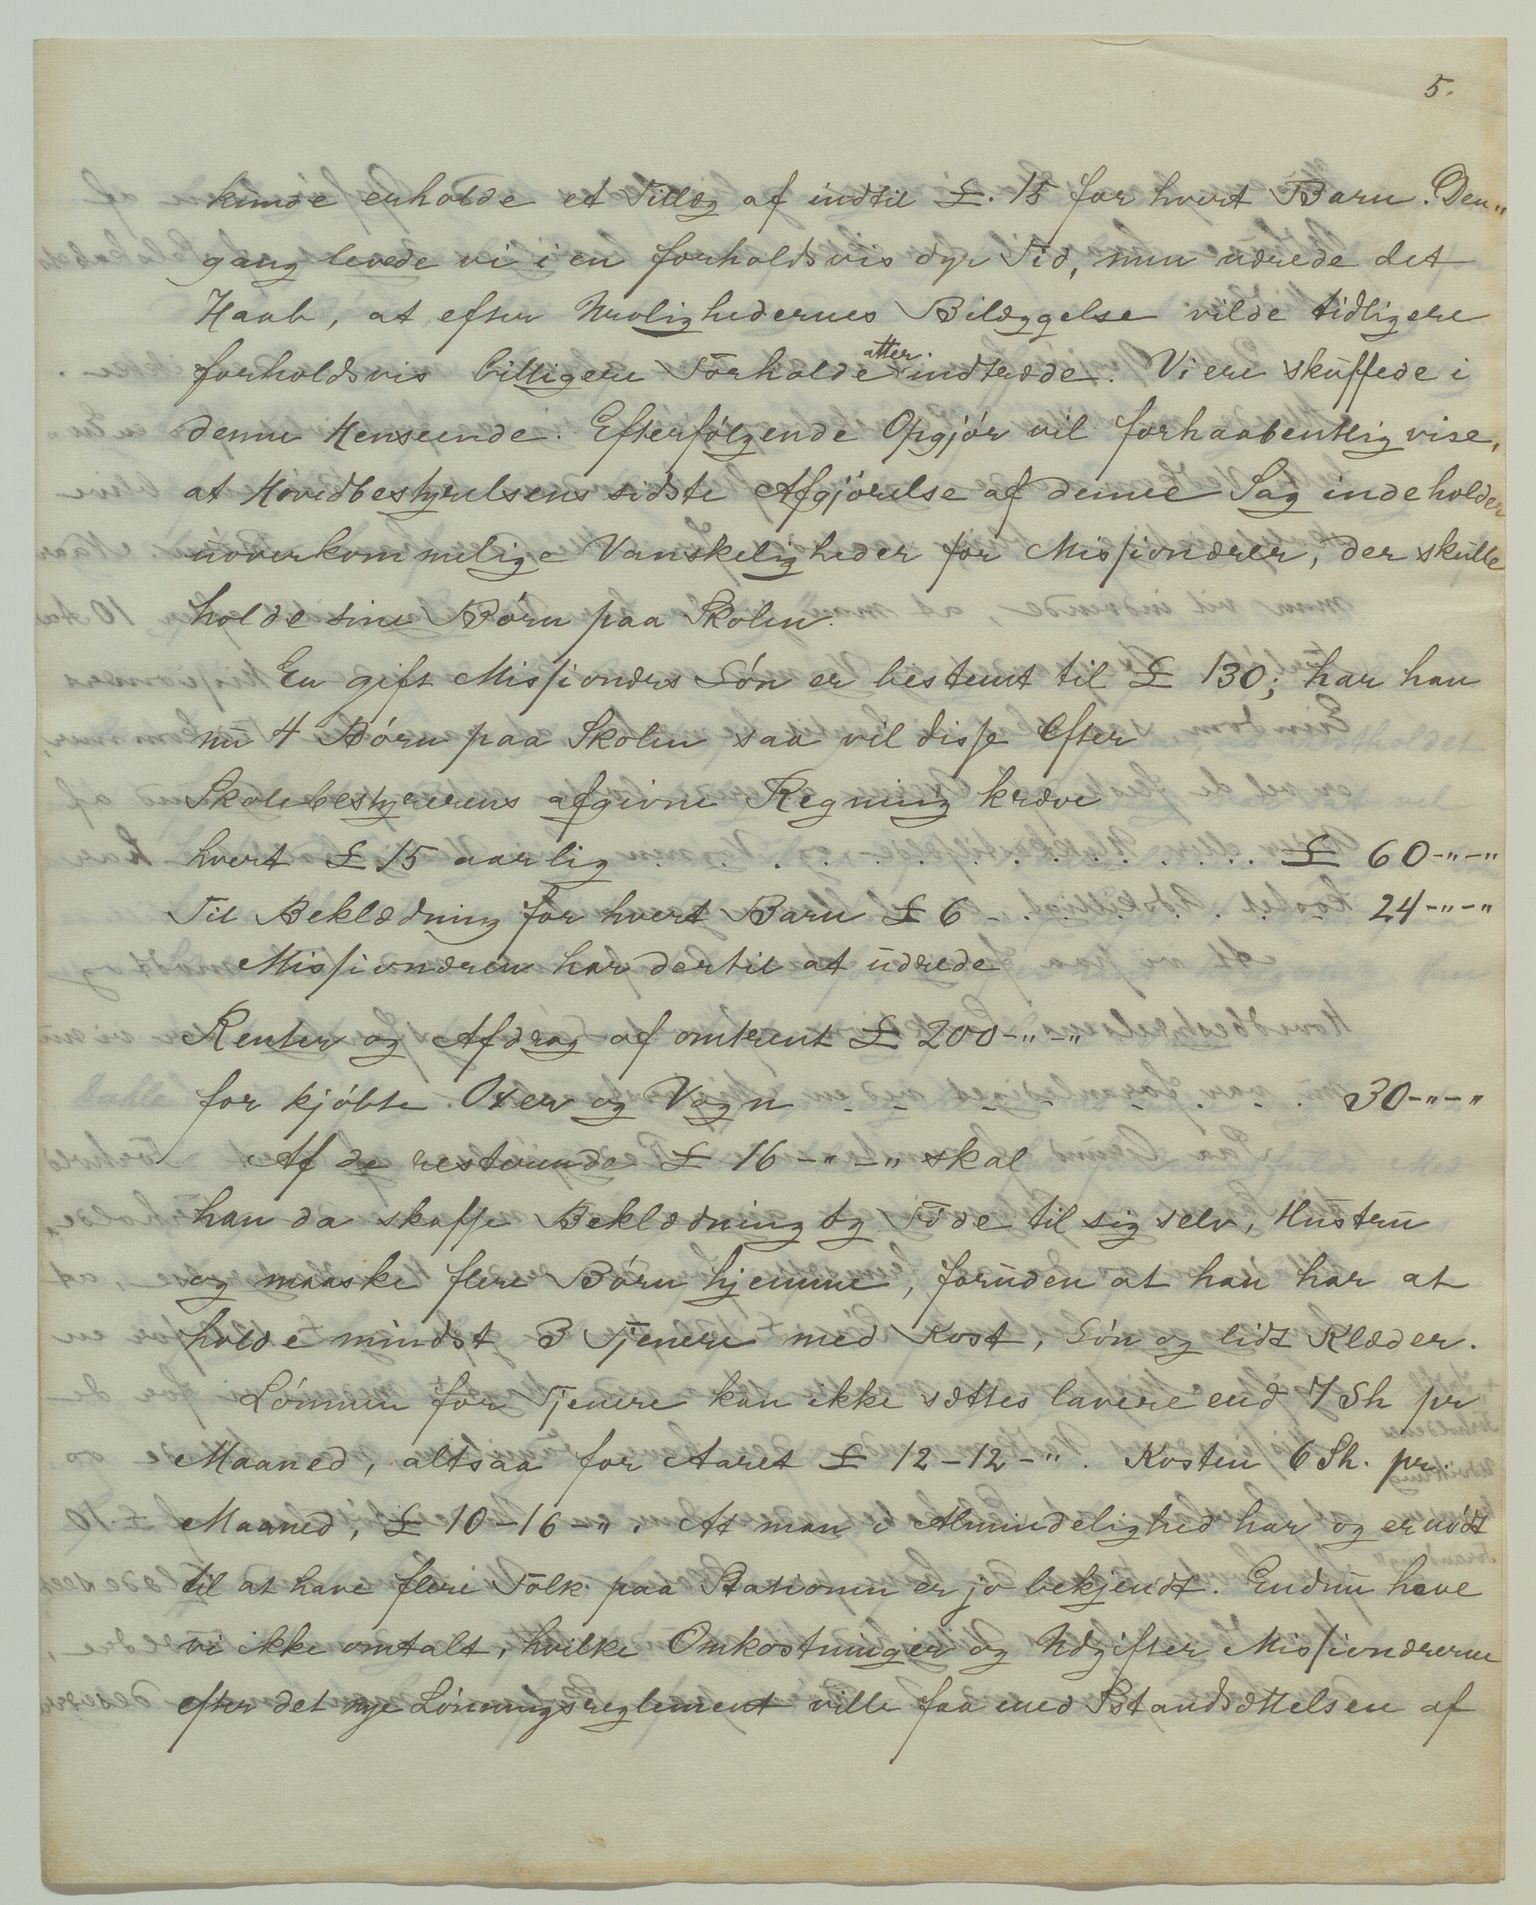 5.
kunde erholde et Tillæg af indtil £. 15 for hvert Barn. Den„
gang levede vi i en forholdsvis dyr Tid, men nærede det
Haab, at efter Urolighedernes Bilæggelse vilde tidligere
forholdsvis billigere Forholde atter indtræde. Vi ere skuffede i
denne Henseende. Efterfølgende Opgjør vil forhaabentlig vise,
at Hovedbestyrelsens sidste Afgjørelse af denne Sag indeholder
uoverkommelige Vanskeligheder for Missionærer, der skulle
holde sine Børn paa Skolen.
En gift Missionærs Løn er bestemt til £ 130; har han
nu 4 Børn paa Skolen saa vil disse efter
Skolebestyrerens afgivne Regning kræve
hvert £ 15 aarlig . . . . . . . . . . . £ 60-„-„
Til Beklædning for hvert Barn £ 6 - . . . . . - 24-„-„
Missionæren har dertil at udrede
Renter og Afdrag af omtrent £ 200-„-„
for kjøbte Oxer og Vogn - - - - - . . . 30-„-„
Af de resterende £ 16-„-„ skal
han da skaffe Beklædning og Føde til sig selv, Hustru
og maaske flere Børn hjemme, foruden at han har at
holde mindst 3 Tjenere med Kost, Løn og lidt Klæder.
Lønnen for Tjenere kan ikke sættes lavere end 7 Sh pr
Maaned, altsaa for Aaret £ 12-12-„. Kosten 6 Sh. pr.
Maaned, £ 10-16-„. At man i Almindelighed har og er nødt
til at have flere Folk paa Stationen er jo bekjendt. Endnu have
vi ikke omtalt, hvilke Omkostninger og Udgifter Missionærerne
efter det nye Lønningsreglement ville faa med Istandsættelsen af